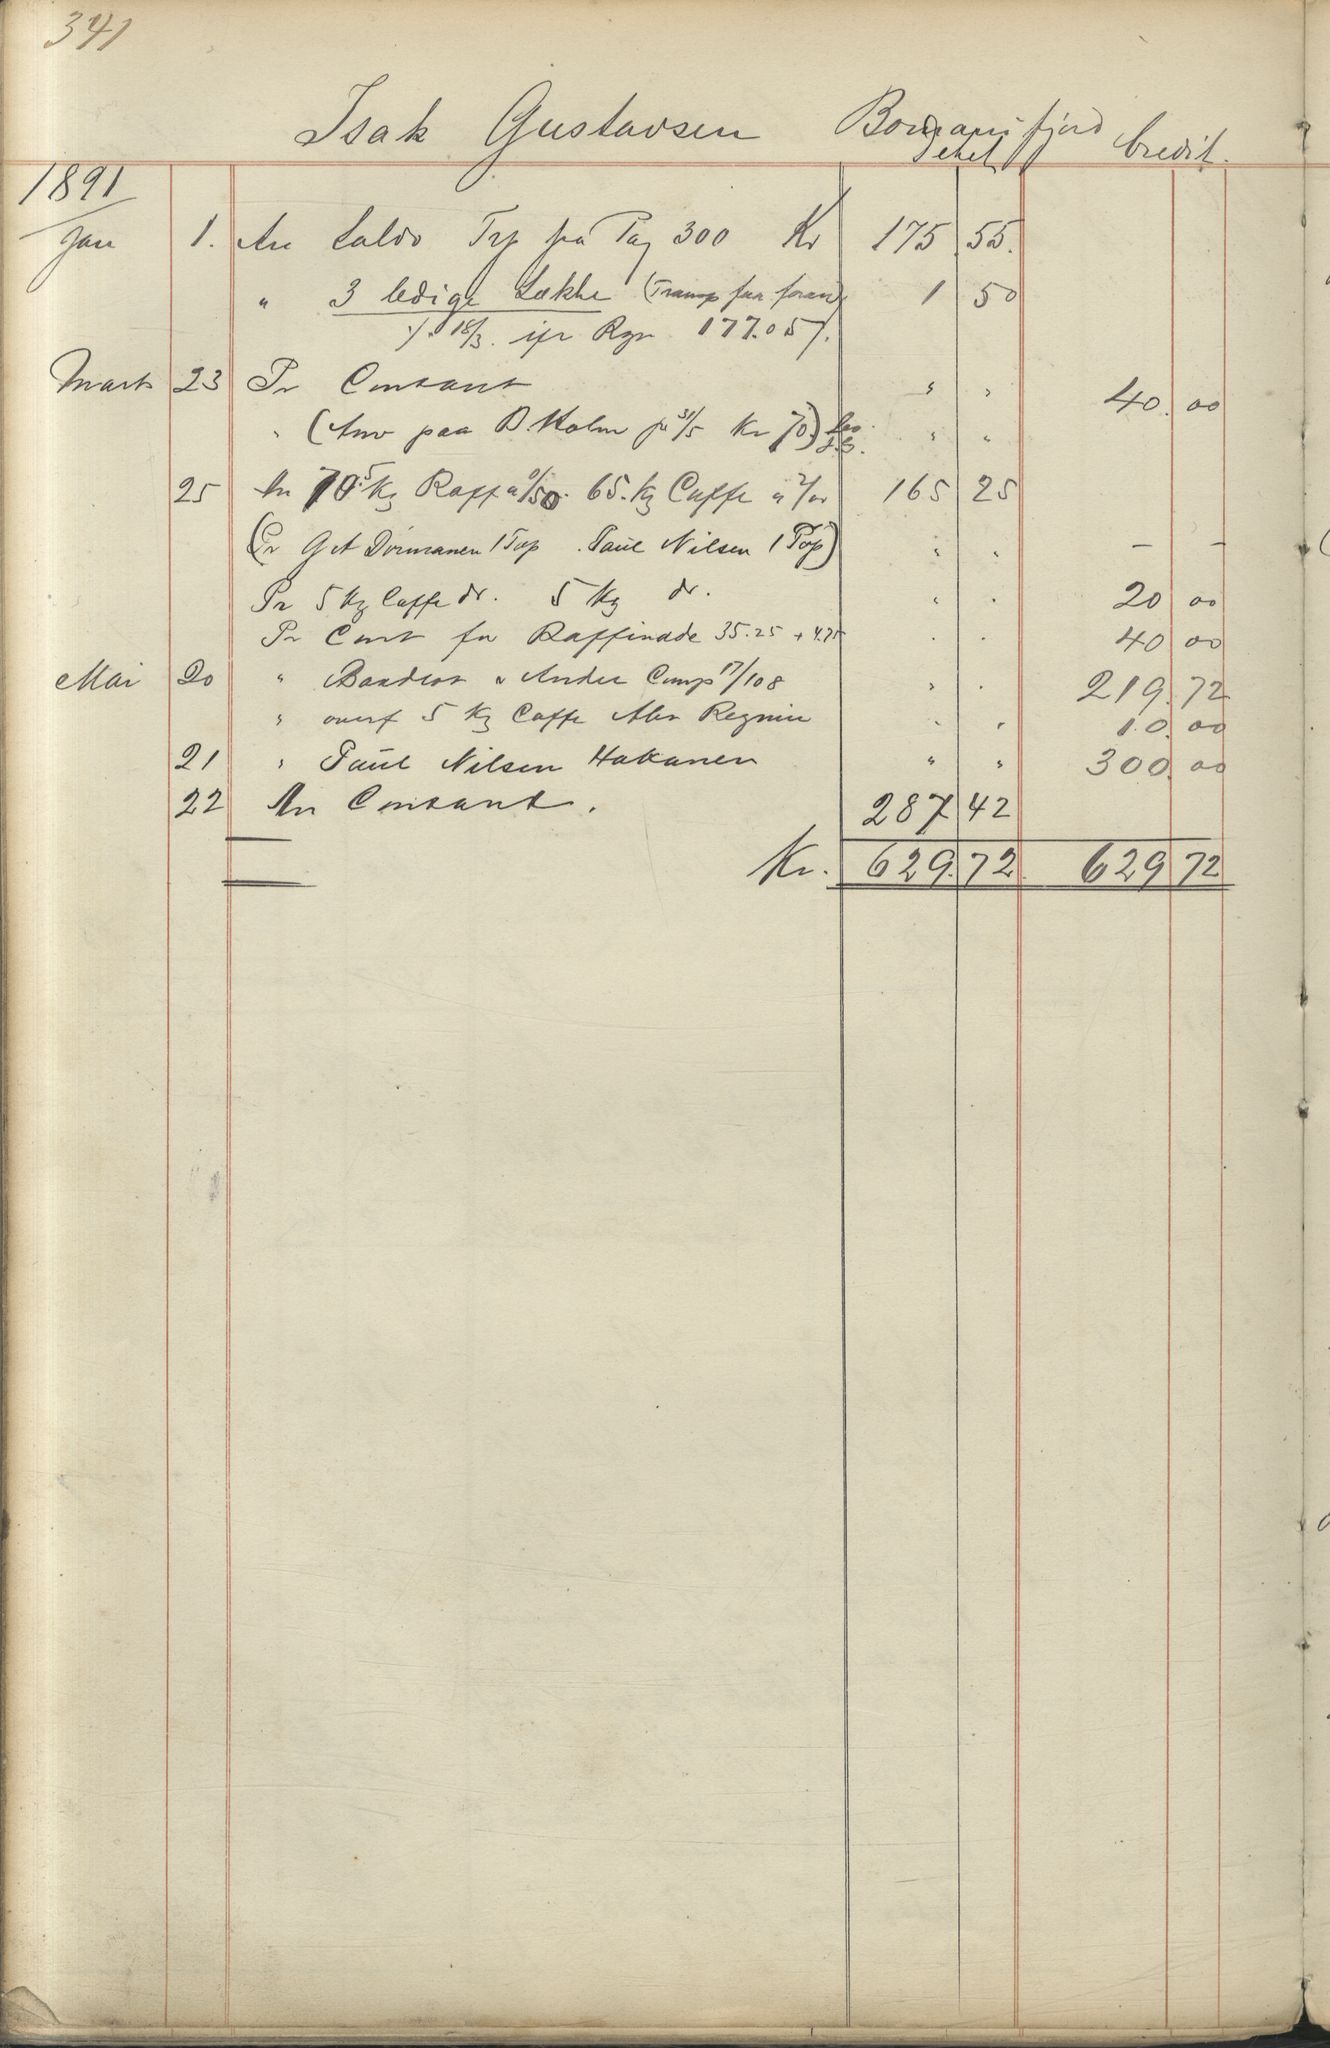 341
Isak Gustavsen
Debet Credit.
1891
Jan 1. An Saldo Trf fra Pag 300 Kr 175 55.
" 3 ledige Sække (Transp fra foran) 1 50
18/3. Rgn 177.05
Marts 23 Pr Contant " " 40.00
" (Anv paa B. Holm pr 31/5 Kr 70) " "
25 An 70.5 Kg Raff a 0/50. 65. Kg Caffe a 2/00 165 25
(Pr G A 1 Top . Paul Nilsen 1 Top) " " - -
Pr 5 Kg Caffe do. 5 Kg do. " " 20 00
Pr Cont for Raffinade 35.25 + 4.75 " " 40 00
Mai 20 " Comp 17/108 " " 219.72
" overf 5 Kg Caffe " " 10.00
21 " Paul Nilsen Hakanen " " 300.00
22 An Contant. 287 42
Kr. 629.72 629 72